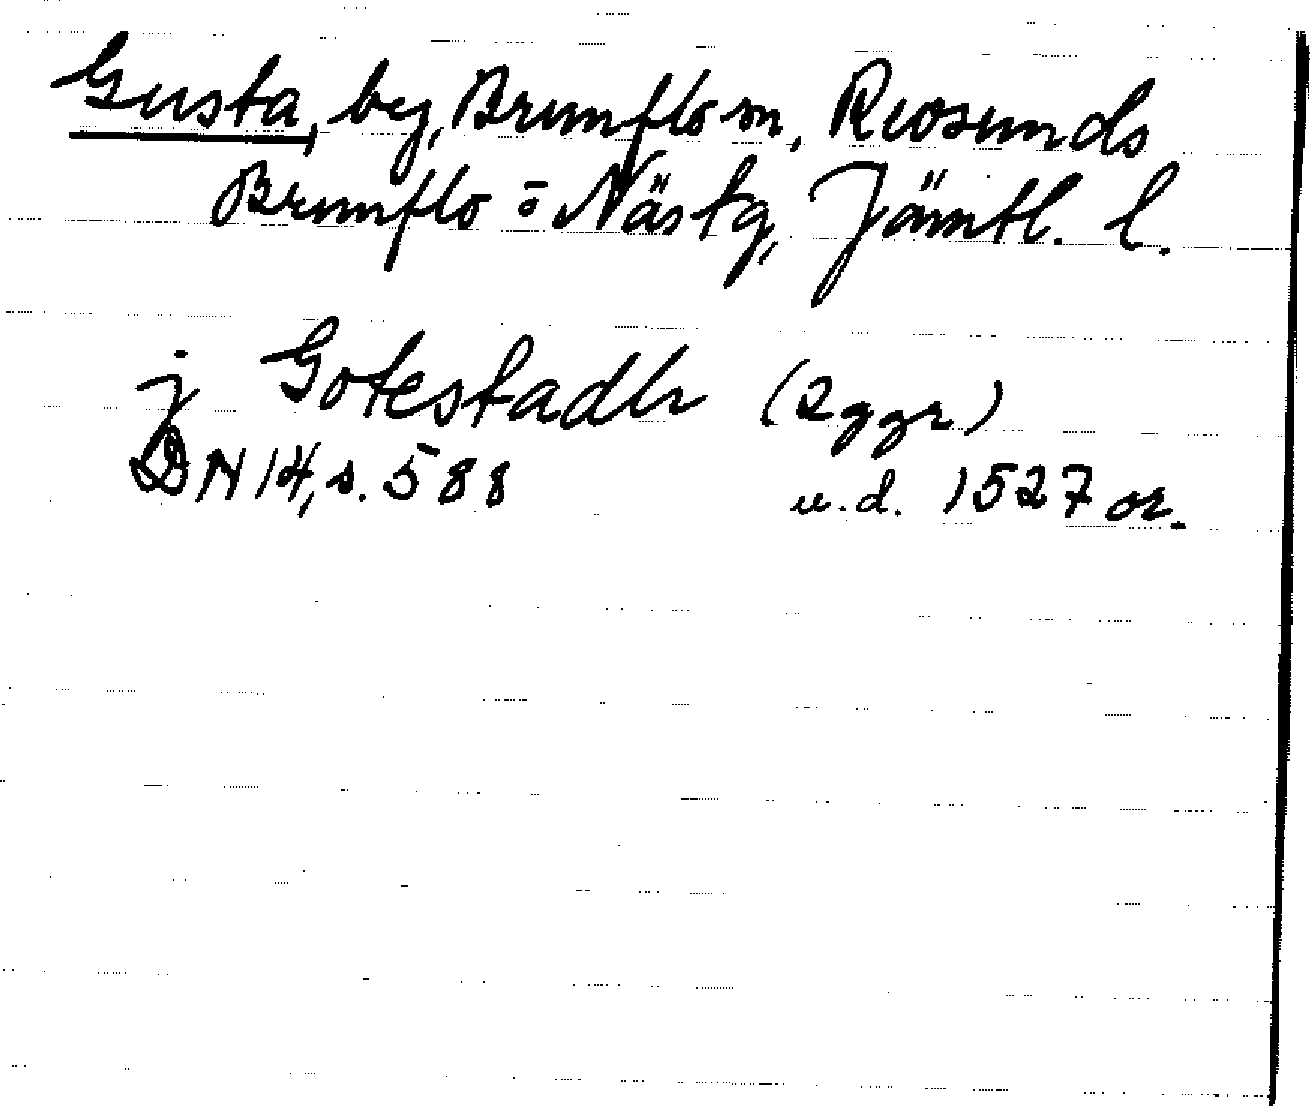 Gusta, by, Brunflo sn, Revsunds
Brunflo o Näs tg, Jämtl. l.
j Gotestadh (2 ggr)
DN 14, s. 588 u.d. 1527 or.